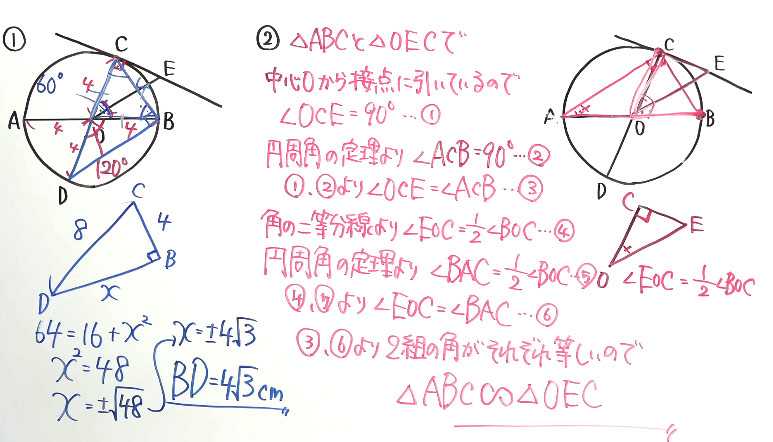 ①
C
E
60°
4
A
4
O
4
B
4
120°
D
C
8
4
B
D
x
64=16+x²
x²=48
x=±√48
x=±4√3
BD=4√3cm
② △ABCと△OECで
中心Oから接点に引いているので
∠OCE=90°…①
円周角の定理より∠ACB=90°…②
①、②より∠OCE=∠ACB…③
角の二等分線より∠EOC=1/2∠BOC…④
円周角の定理より∠BAC=1/2∠BOC…⑤
④、⑤より∠EOC=∠BAC…⑥
③、⑥より2組の角がそれぞれ等しいので
△ABC∽△OEC
C
E
A
×
O
B
D
C
E
×
O
∠EOC=1/2∠BOC